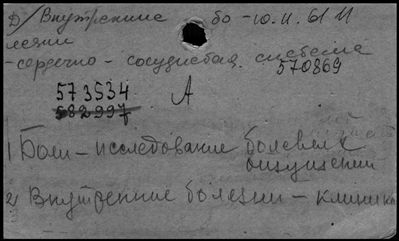 Д/ Внутренние бо - 10.11.61 И
лезни
- сердечно - сосудистая система
570869
573534 А
582997
1 Боли - исследование болевых
ощущений
2 Внутренние болезни - клиника
3